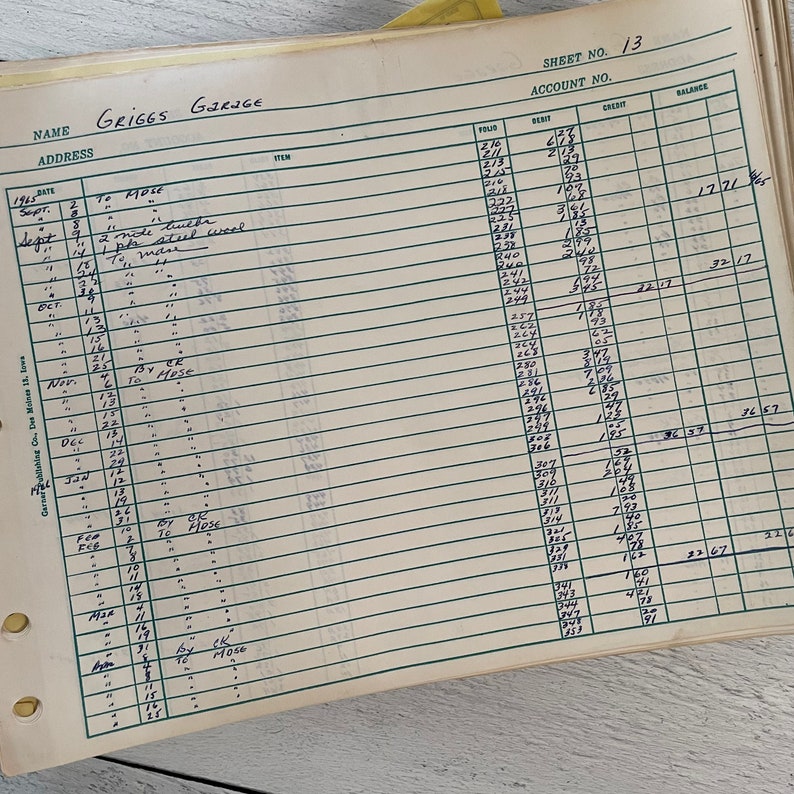 SHEET NO. 13
NAME GRIGGS GARAGE
ACCOUNT NO.
ADDRESS
DATE ITEM FOLIO DEBIT CREDIT BALANCE
1965
SEPT. 2 TO MDSE 210 27
" 3 " " 211 6 18
" 8 " " 213 2 13
Sept 9 2 mde bulbs 215 29
" " 1 pkg steel wool 216 70
" 14 To mdse 218 93
" 18 " " 222 1 07
" 24 " " 227 68 17 71
" " 225 3 61
" 30 " " 231 1 85
OCT. 9 " " 238 13
" 11 " " 238 1 85
" 13 " " 240 2 99
" 13 " " 240 2 40
" 15 " " 241 98
" 16 " " 242 72
" 21 " " 244 1 94
" 25 " " 249 3 45 32 17
NOV. 4 BY CK 22 17
" 6 TO MDSE 257 1 85
" 12 " " 262 1 18
" 13 " " 264 93
" 15 " " 264 62
" 22 " " 268 05
DEC 13 " " 280 3 47
" 14 " " 281 8 19
" 22 " " 286 7 09
" 29 " " 291 2 36
1966 JAN 12 " " 296 6 85
" 12 " " 296 29
" 13 " " 297 47
" 19 " " 299 1 28
" 26 " " 303 05
" 31 " " 306 1 95 36 57
FEB 10 BY CK 36 57
FEB 2 TO MDSE 307 52
" 7 " " 309 1 69
" 8 " " 310 2 04
" 10 " " 311 49
" 11 " " 311 1 08
" 14 " " 313 20
" 18 " " 314 7 93
MAR 4 " " 321 40
" 11 " " 325 1 85
" 16 " " 329 4 07
" 19 " " 331 78
" 31 " " 338 1 62
BY CK 22 67
APR 4 TO MDSE 341 1 60
" 8 " " 343 41
" 11 " " 344 4 21
" 15 " " 347 78
" 16 " " 348 20
" 25 " " 353 91
Garner Publishing Co., Des Moines 13, Iowa